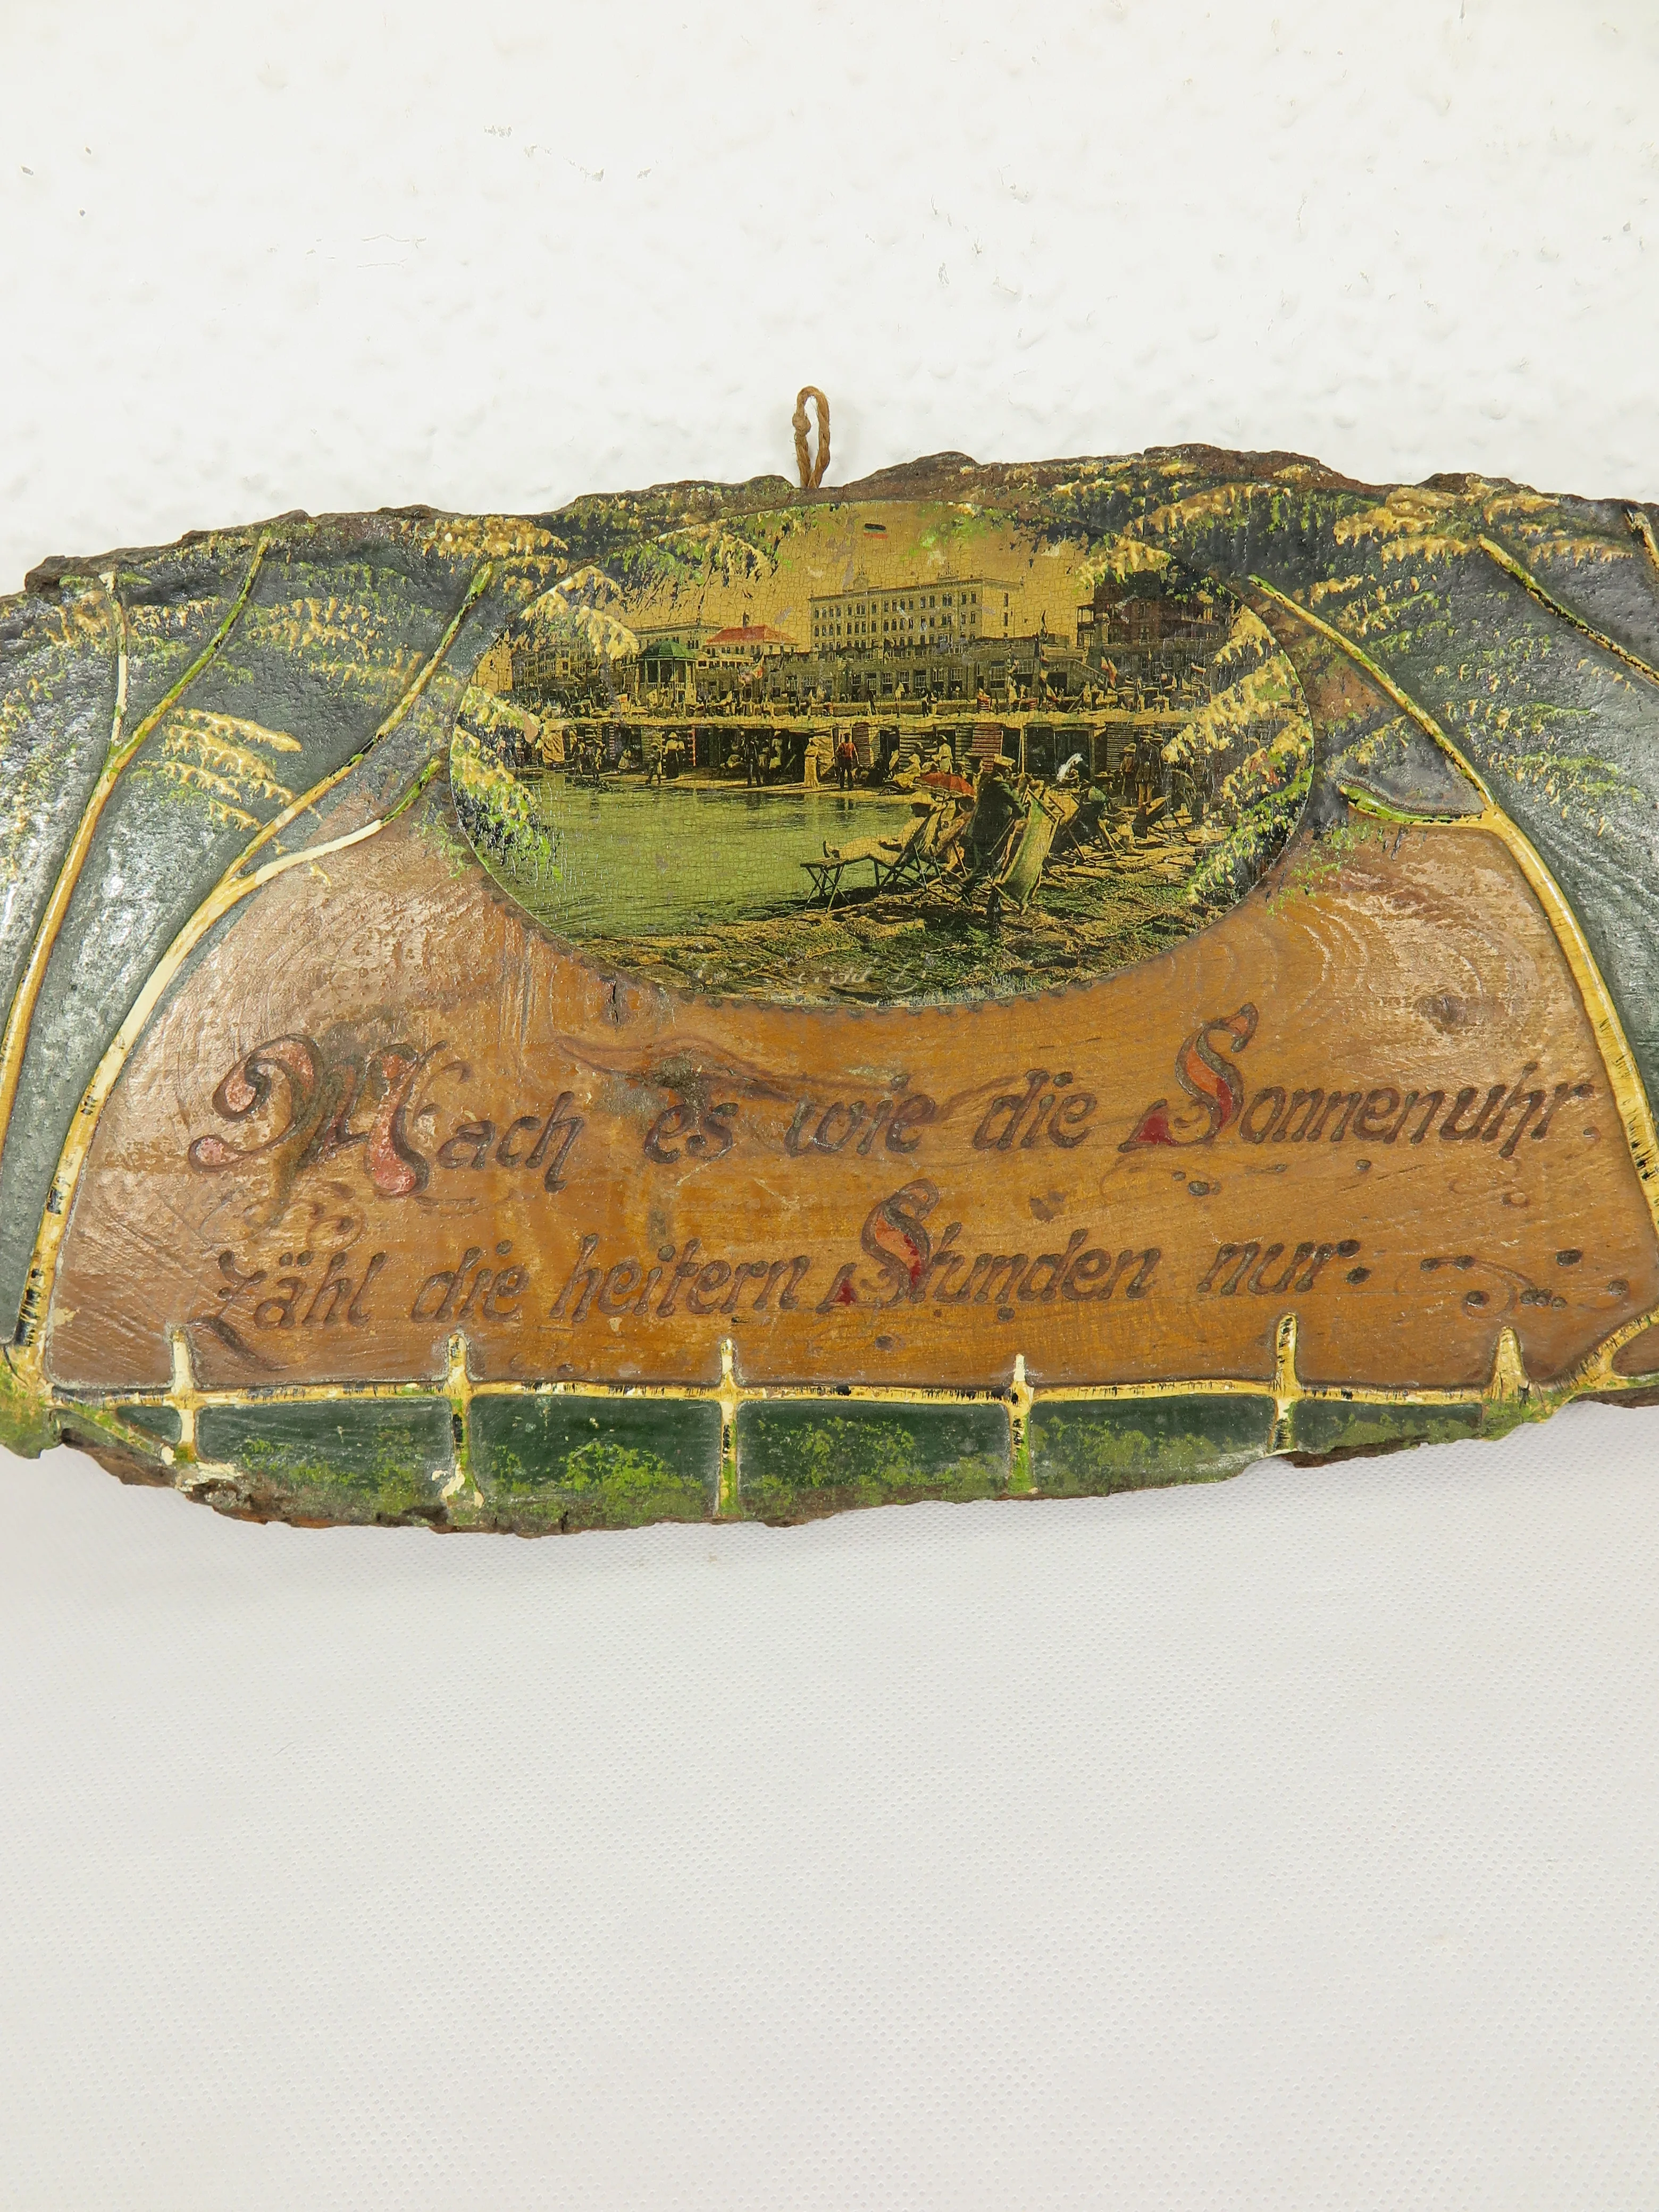 Mach es wie die Sonnenuhr,
zähl die heitern Stunden nur.